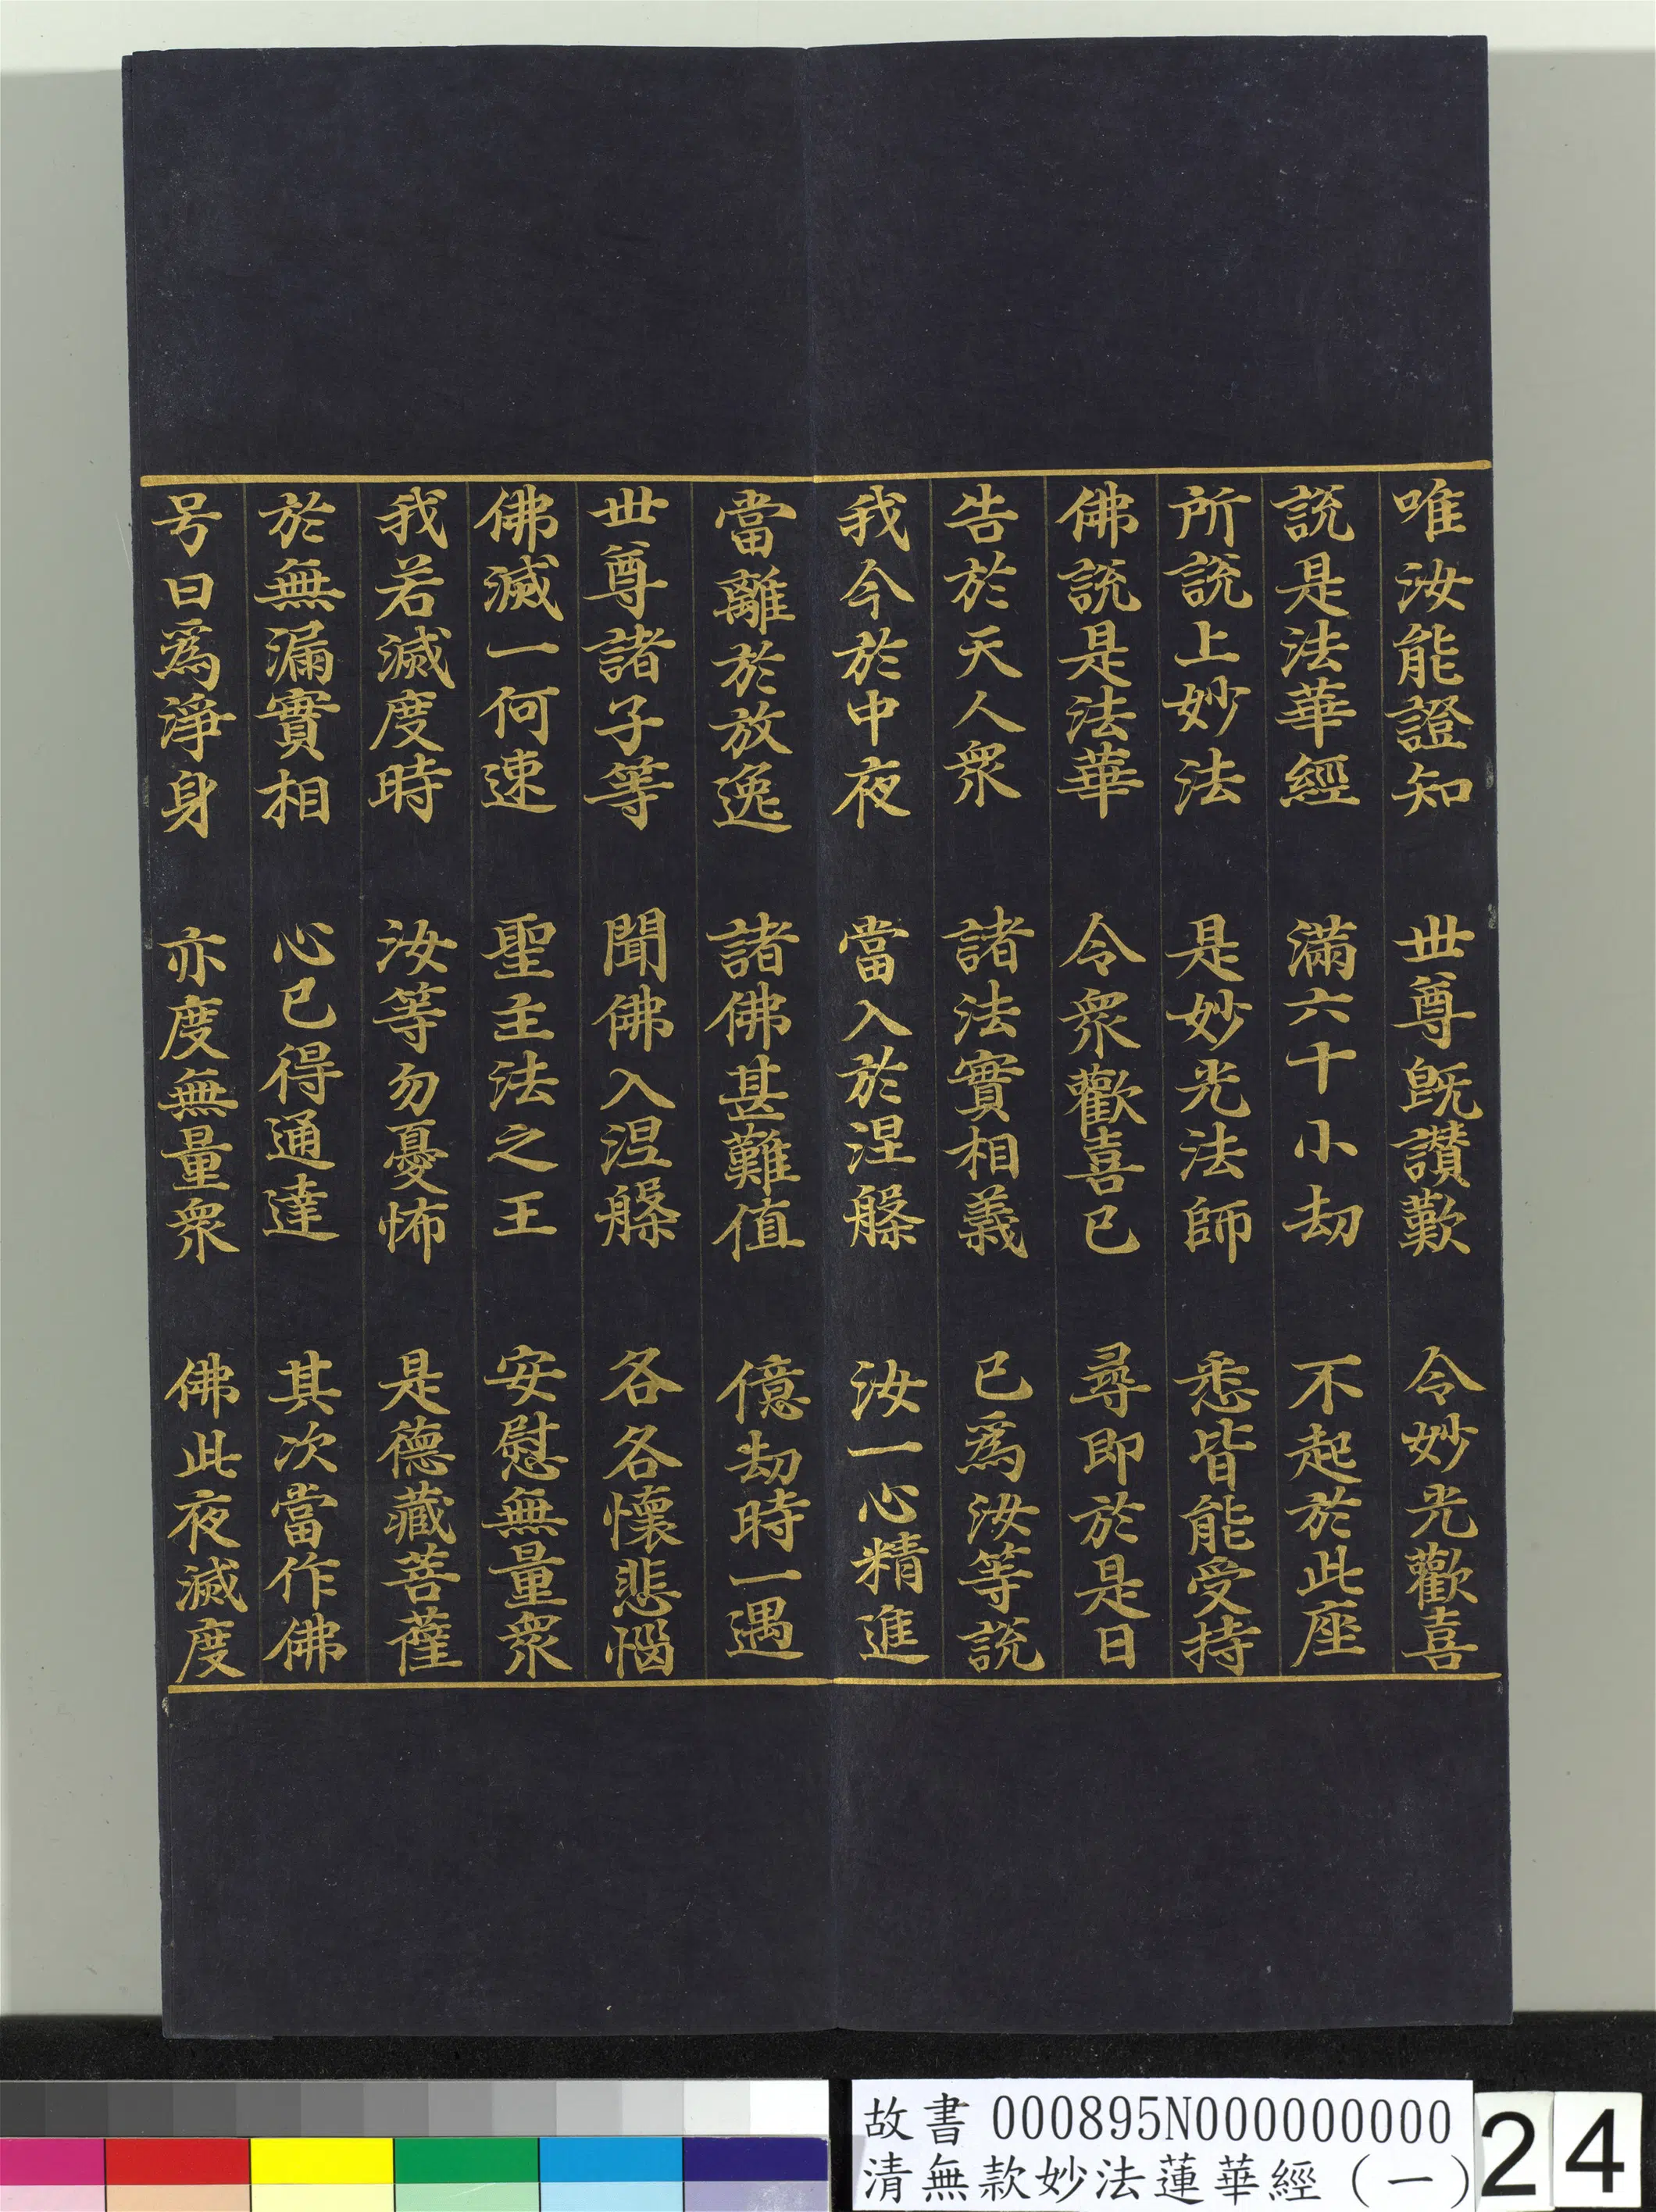 唯汝能證知　世尊旣讃歎　令妙光歡喜
說是法華經　滿六十小劫　不起於此座
所說上妙法　是妙光法師　悉皆能受持
佛說是法華　令衆歡喜已　尋即於是日
告於天人衆　諸法實相義　已爲汝等說
我今於中夜　當入於涅槃　汝一心精進
當離於放逸　諸佛甚難值　億劫時一遇
世尊諸子等　聞佛入涅槃　各各懷悲惱
佛滅一何速　聖主法之王　安慰無量衆
我若滅度時　汝等勿憂怖　是德藏菩薩
於無漏實相　心已得通達　其次當作佛
号曰爲淨身　亦度無量衆　佛此夜滅度
故書 000895N000000000
清無款妙法蓮華經（一）
24